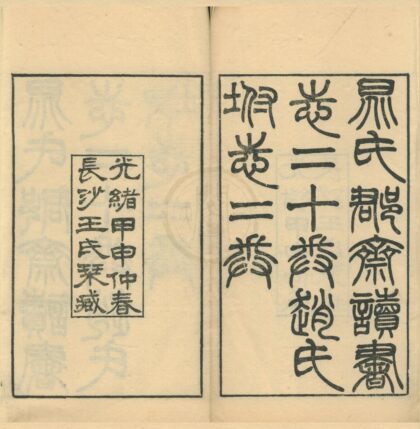 晁氏郡齋讀書
志二十卷趙氏
坿志二卷
光緒甲申仲春
長沙王氏栞臧